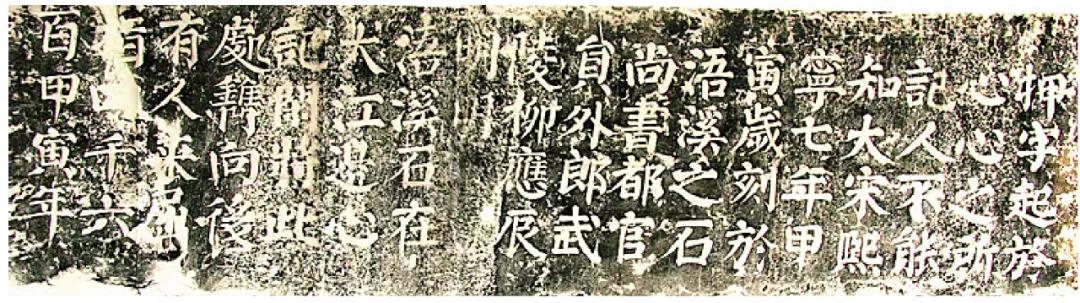 押字起於
心心之所
記人不能
知大宋熙
寧七年甲
寅歲刻於
浯溪之石
尚書都官
員外郎武
陵柳應辰
浯溪石在
大江邊心
記閑將此
處鐫向後
有人來屈
指四千六
百甲寅年